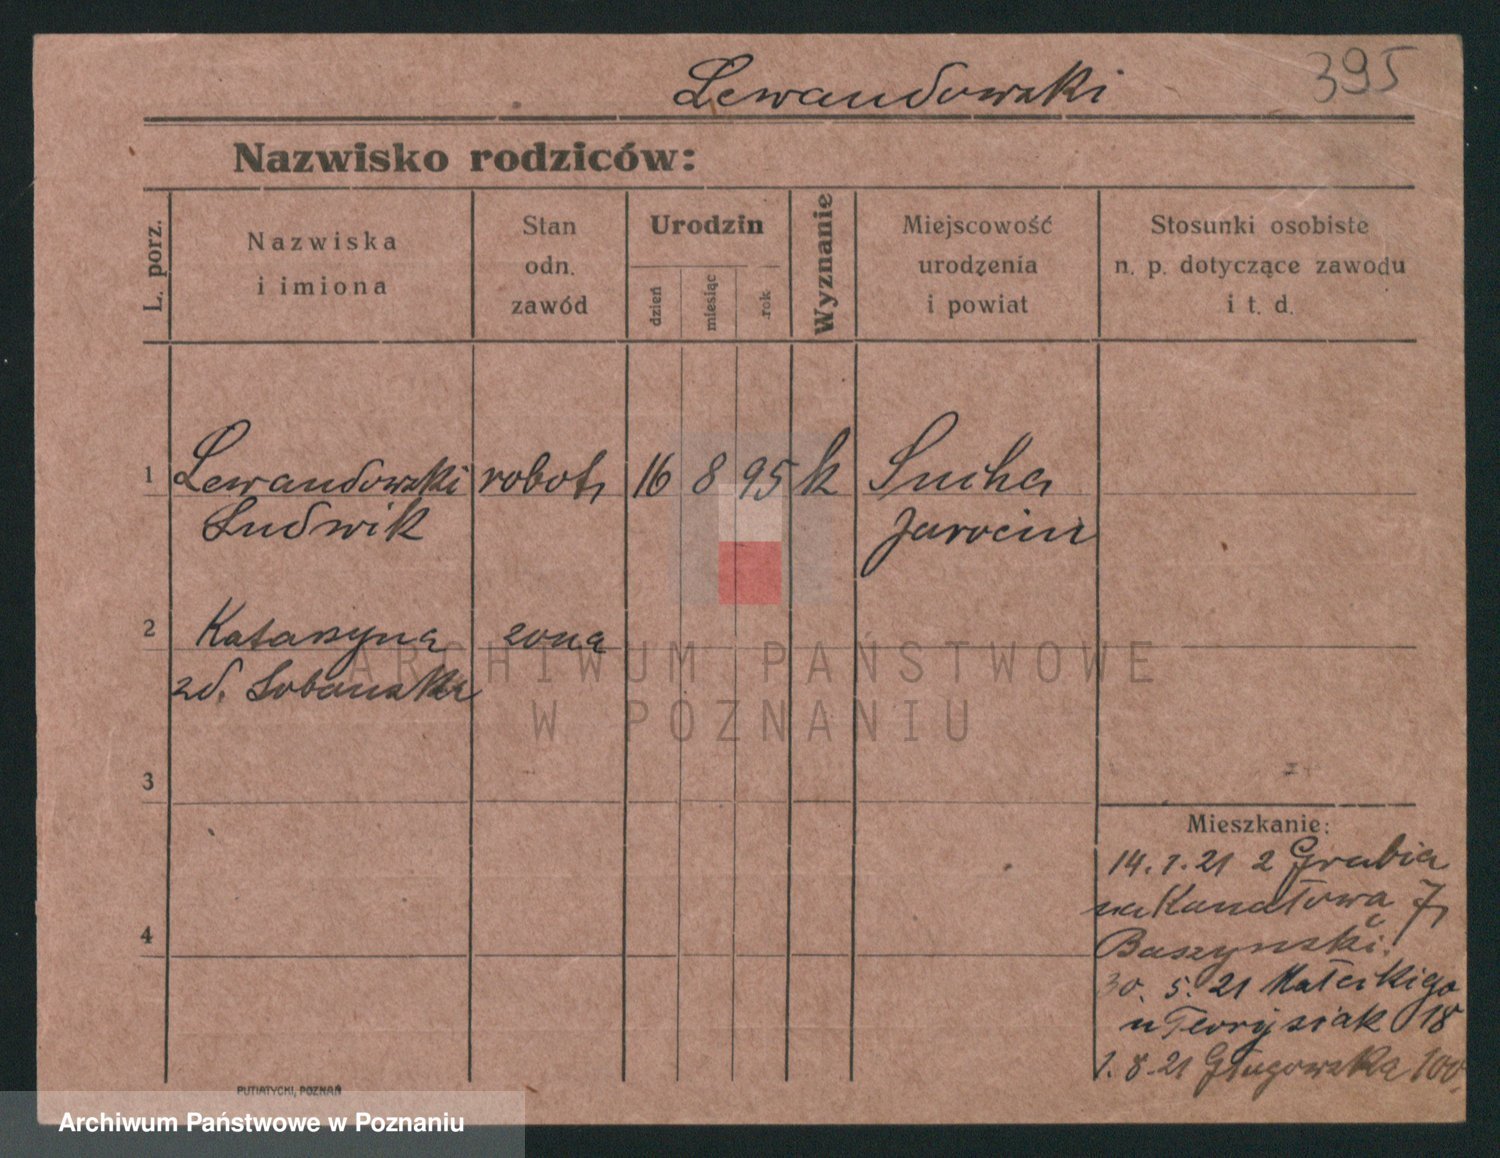 Lewandowski
395
Nazwisko rodziców:
L. porz.
Nazwiska
i imiona
Stan
odn.
zawód
Urodzin
dzień
miesiąc
rok
Wyznanie
Miejscowość
urodzenia
i powiat
Stosunki osobiste
n. p. dotyczące zawodu
i t. d.
1
Lewandowski robot. 16 8 95 k Sucha
Ludwik Jarocin
2
Katarzyna żona
zd.
ARCHIWUM PAŃSTWOWE
W POZNANIU
3
Mieszkanie:
14. 1. 21 z Grabia
na Kanałowa 7
4
Baszynski
30. 5. 21
18
1. 8. 21 100
PUTIATYCKI, POZNAŃ
Archiwum Państwowe w Poznaniu